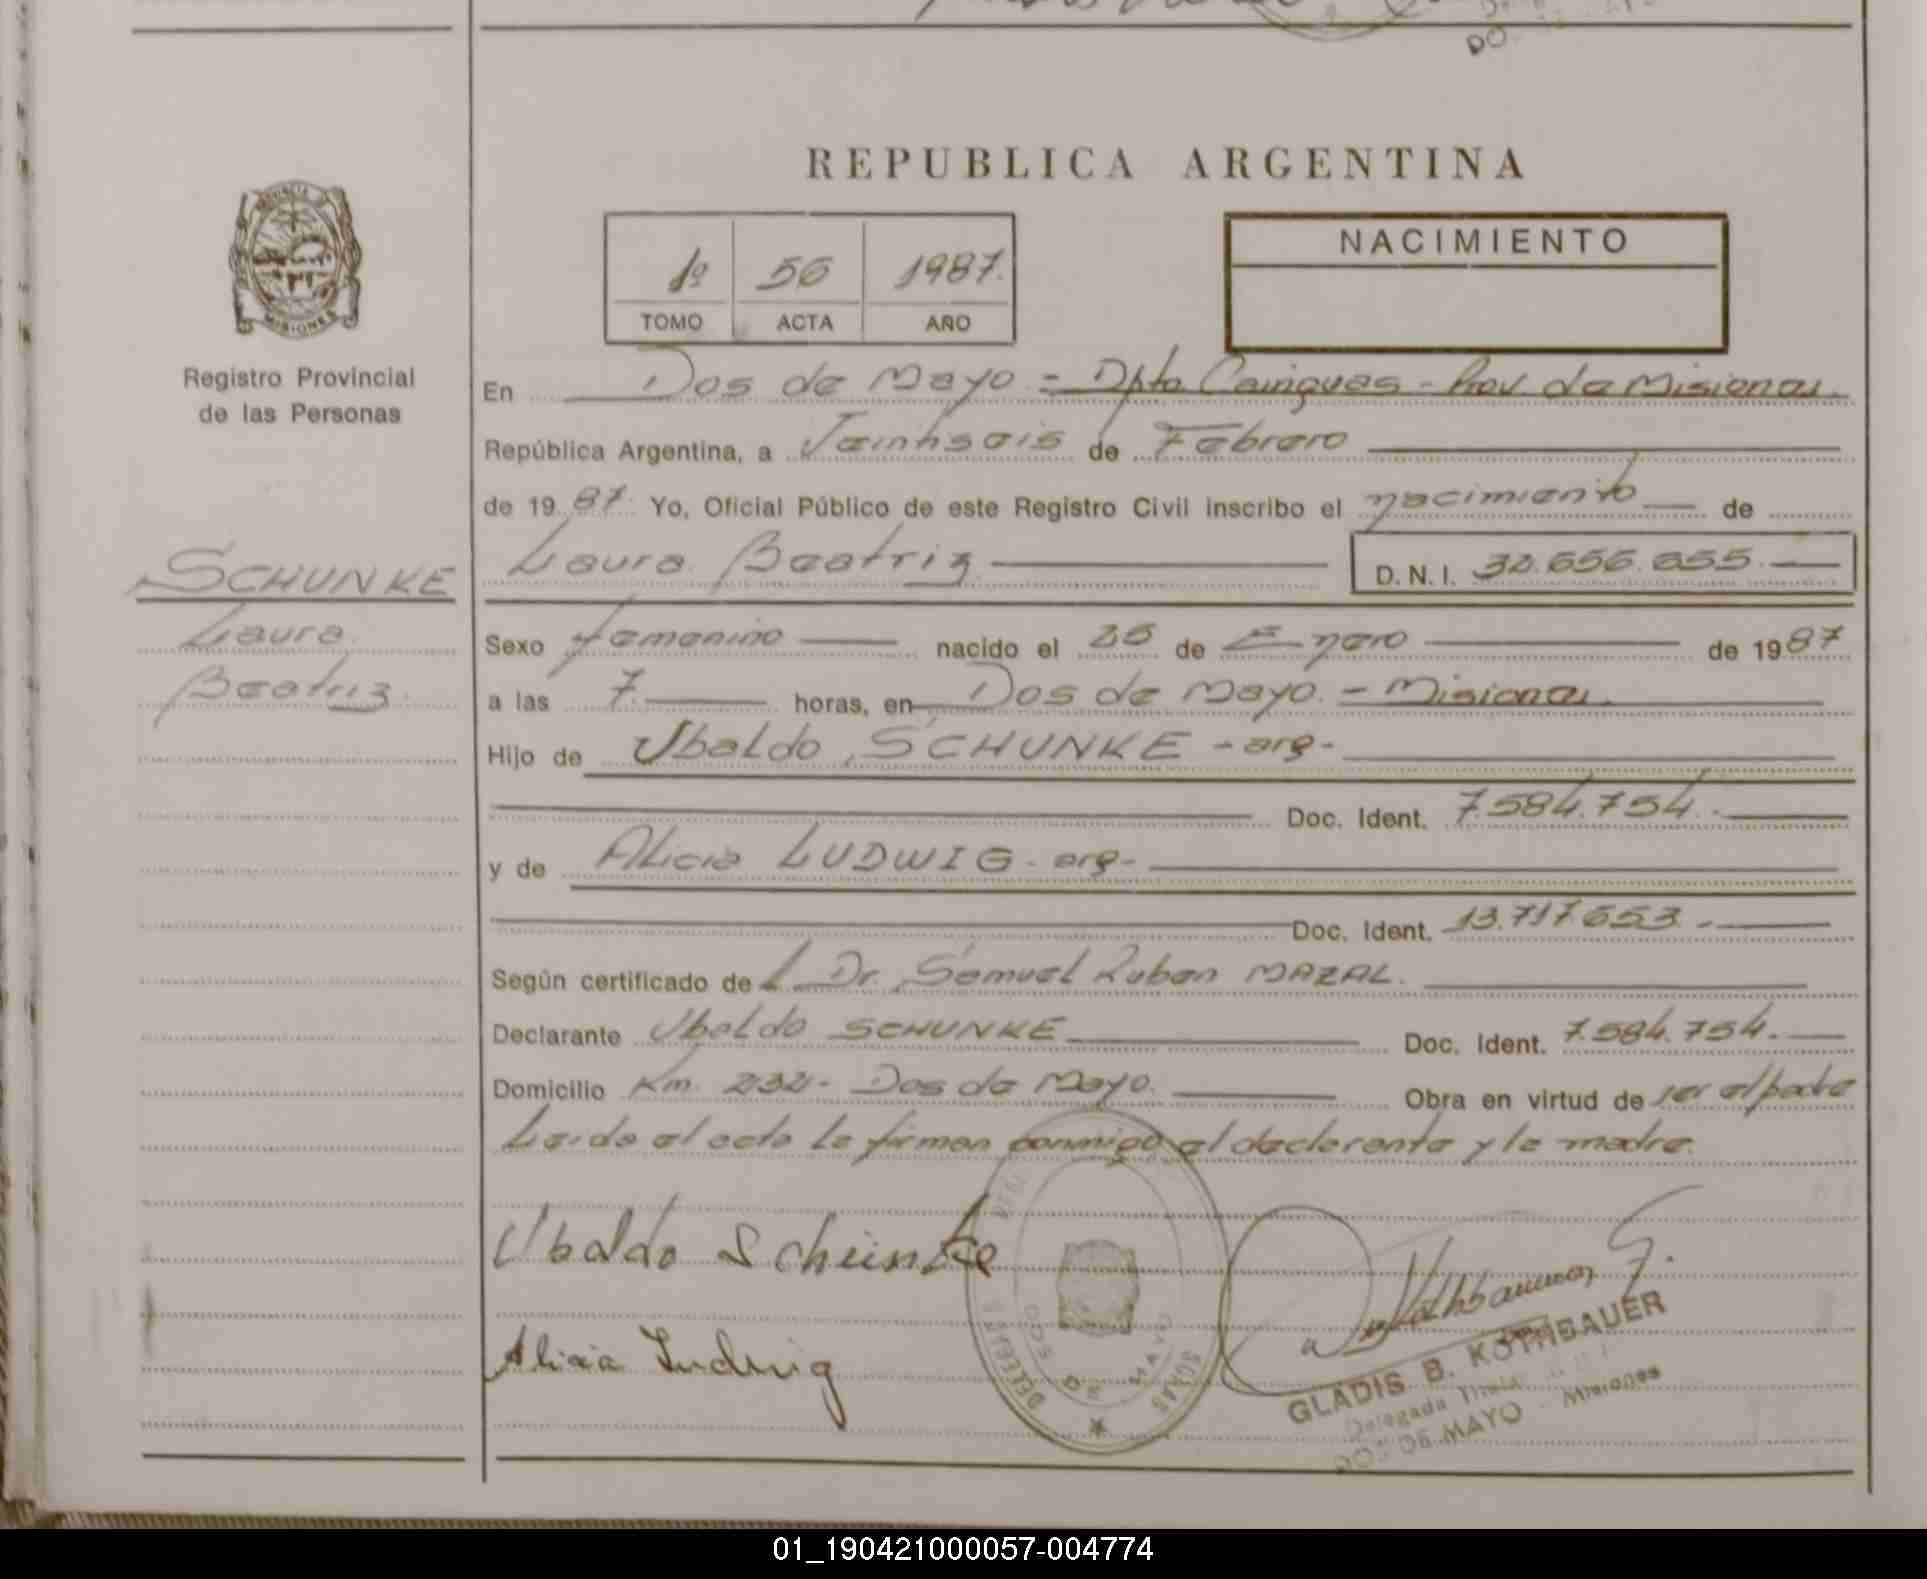 REPUBLICA ARGENTINA
1º 56 1987.
TOMO ACTA AÑO
NACIMIENTO
MISIONES
Registro Provincial
de las Personas
En Dos de Mayo - Dpto Cainguas - Prov. de Misiones.
República Argentina, a Veintiseis de Febrero
de 1987. Yo, Oficial Público de este Registro Civil inscribo el nacimiento de
SCHUNKE
Laura
Beatriz.
Laura Beatriz D.N.I. 32.656.655.
Sexo femenino nacido el 25 de Enero de 1987
a las 7. horas, en Dos de Mayo. - Misiones.
Hijo de Ubaldo SCHUNKE - arg-
Doc. Ident. 7.584.754.
y de Alicia LUDWIG - arg-
Doc. Ident. 13.717.653.
Según certificado de Dr. Samuel Ruben MAZAL.
Declarante Ubaldo SCHUNKE Doc. Ident. 7.584.754.
Domicilio Km. 232- Dos de Mayo. Obra en virtud de ser el padre
Leida el acta la firman conmigo el declarante y la madre.
Ubaldo Schünke
Alicia Ludwig
DOS DE MAYO
GLADIS B. KOTHBAUER
Delegada Titular
DOS DE MAYO - Misiones
01_190421000057-004774